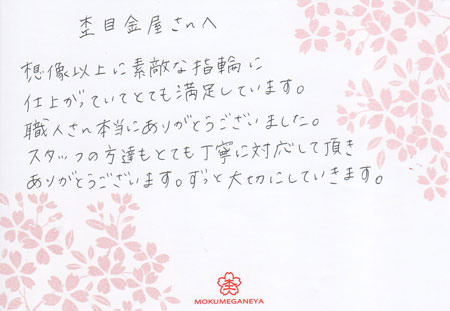 杢目金屋さんへ
想像以上に素敵な指輪に
仕上がっていてとても満足しています。
職人さん本当にありがとうございました。
スタッフの方達もとても丁寧に対応して頂き
ありがとうございます。ずっと大切にしていきます。
MOKUMEGANEYA